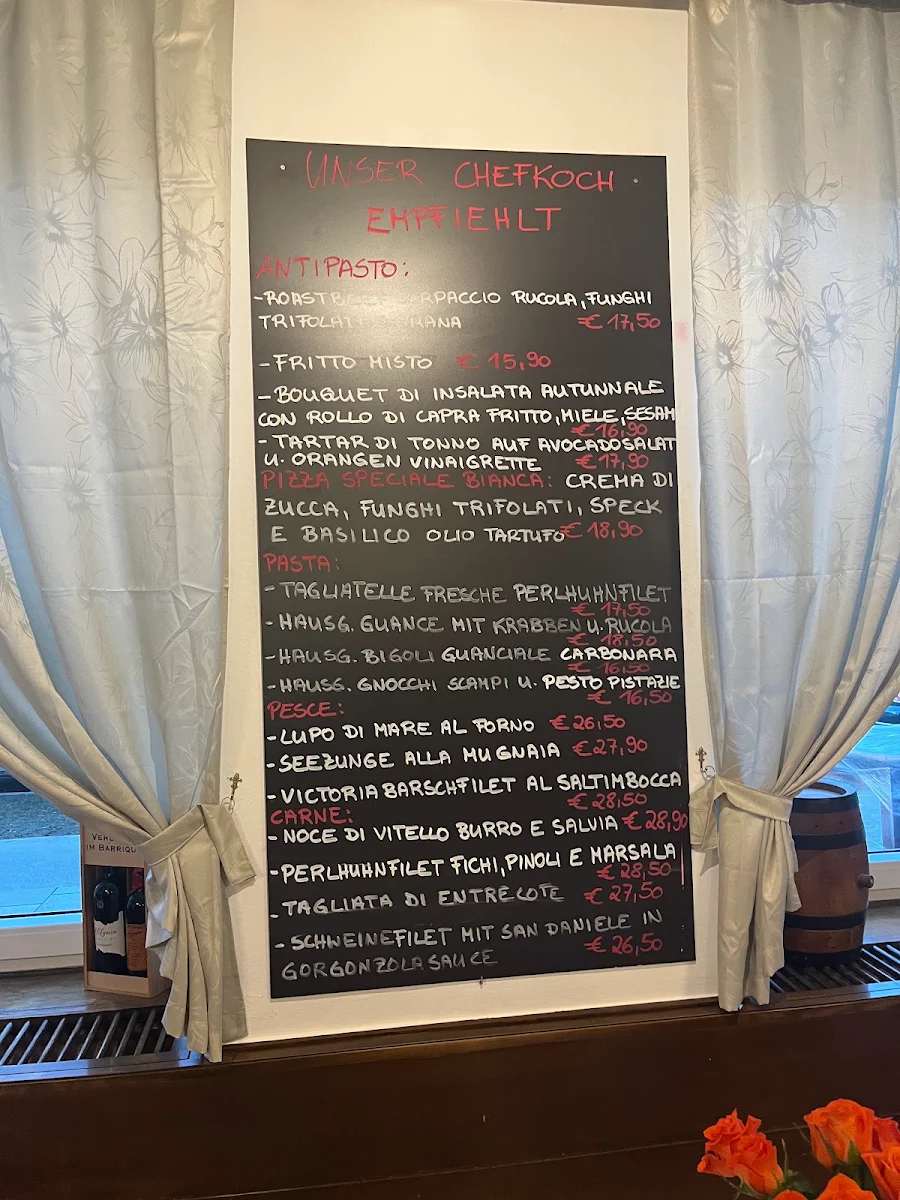 UNSER CHEFKOCH
EMPFIEHLT
ANTIPASTO:
-ROASTBEEF CARPACCIO RUCOLA, FUNGHI
TRIFOLATI € 17,50
-FRITTO MISTO € 15,90
-BOUQUET DI INSALATA AUTUNNALE
CON ROLLO DI CAPRA FRITTO, MIELE, SESAM
€ 16,90
-TARTAR DI TONNO AUF AVOCADOSALAT
U. ORANGEN VINAIGRETTE € 17,90
PIZZA SPECIALE BIANCA: CREMA DI
ZUCCA, FUNGHI TRIFOLATI, SPECK
E BASILICO OLIO TARTUFO € 18,90
PASTA:
-TAGLIATELLE FRESCHE PERLHUHNFILET
€ 17,50
-HAUSG. GUANCE MIT KRABBEN U. RUCOLA
€ 18,50
-HAUSG. BIGOLI GUANCIALE CARBONARA
€ 16,50
-HAUSG. GNOCCHI SCAMPI U. PESTO PISTAZIE
€ 16,50
PESCE:
-LUPO DI MARE AL FORNO € 26,50
-SEEZUNGE ALLA MUGNAIA € 27,90
-VICTORIABARSCHFILET AL SALTIMBOCCA
€ 28,50
CARNE:
-NOCE DI VITELLO BURRO E SALVIA € 28,90
-PERLHUHNFILET FICHI, PINOLI E MARSALA
€ 28,50
-TAGLIATA DI ENTRECOTE € 27,50
-SCHWEINEFILET MIT SAN DANIELE IN
GORGONZOLASAUCE € 26,50
IM BARRIQU